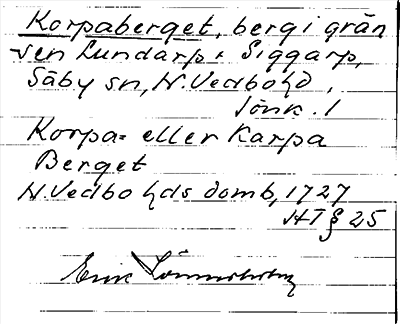 Korpaberget, berg i grän
sen Lundarp - Siggarp,
Säby sn, N. Vedbo hd,
Jönk. l
Korpa= eller Karpa
Berget
N Vedbo hds domb, 1727
HT § 25
Erik